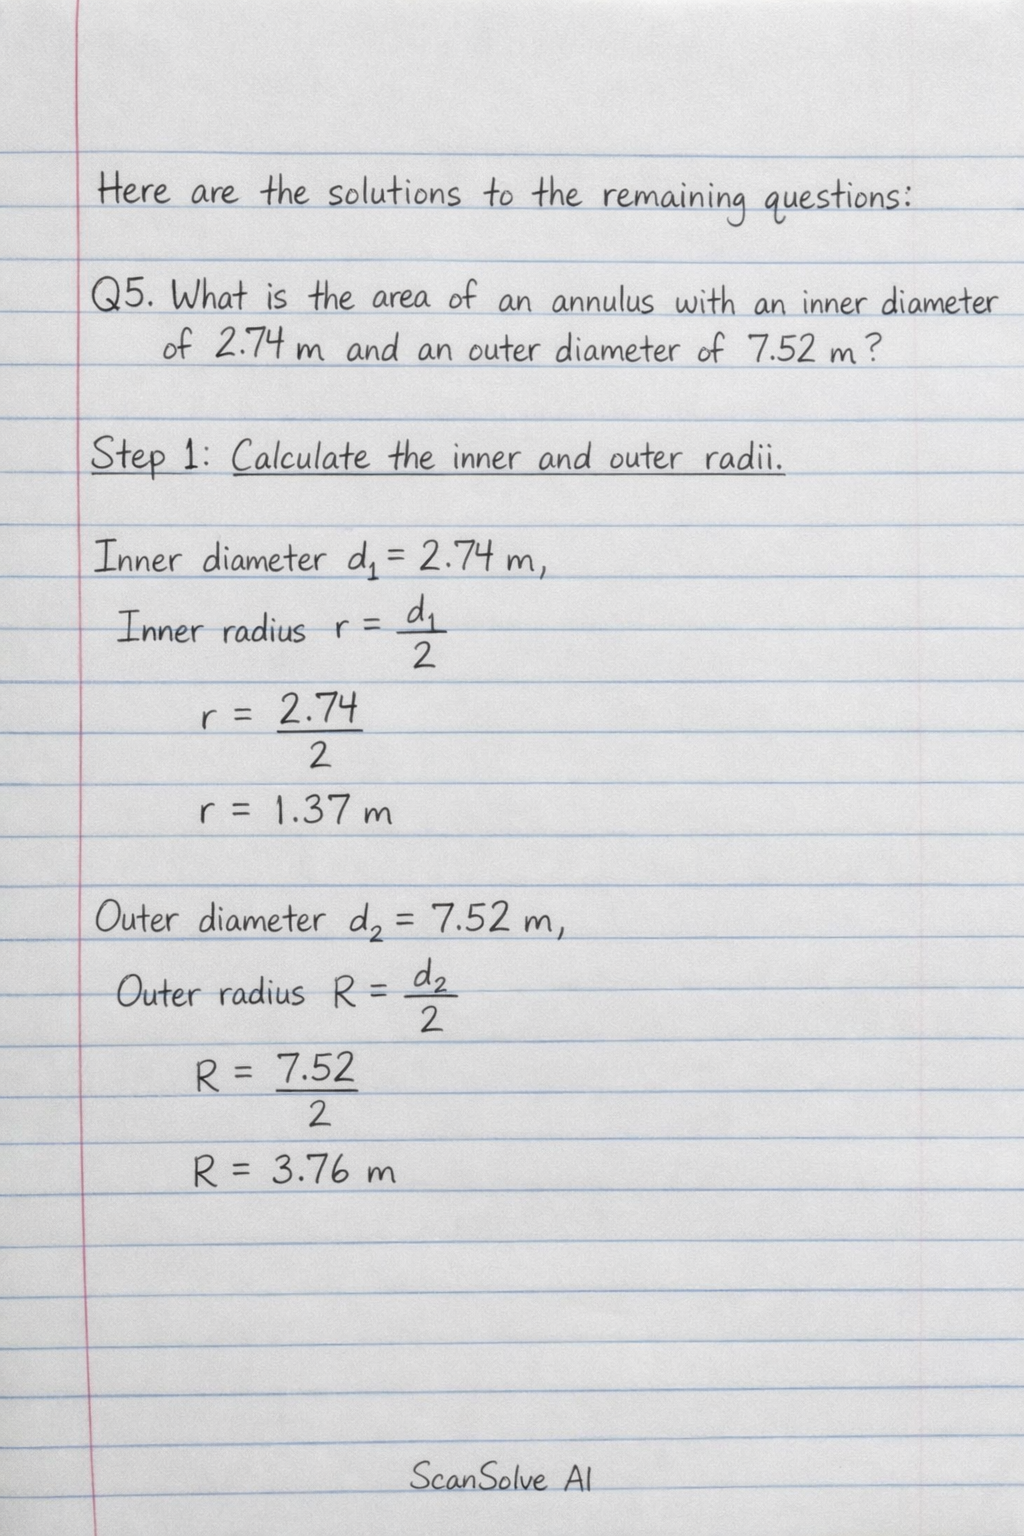 Here are the solutions to the remaining questions:
Q5. What is the area of an annulus with an inner diameter
of 2.74 m and an outer diameter of 7.52 m?
Step 1: Calculate the inner and outer radii.
Inner diameter d₁ = 2.74 m,
Inner radius r = d₁/2
r = 2.74/2
r = 1.37 m
Outer diameter d₂ = 7.52 m,
Outer radius R = d₂/2
R = 7.52/2
R = 3.76 m
ScanSolve AI